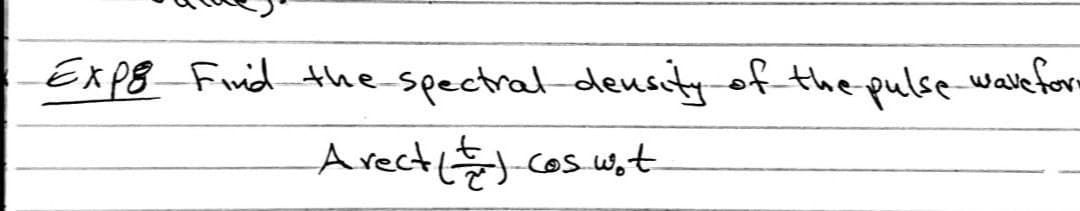 Exp8 Find the spectral density of the pulse wavefor
A rect(t/τ) cos w₀t